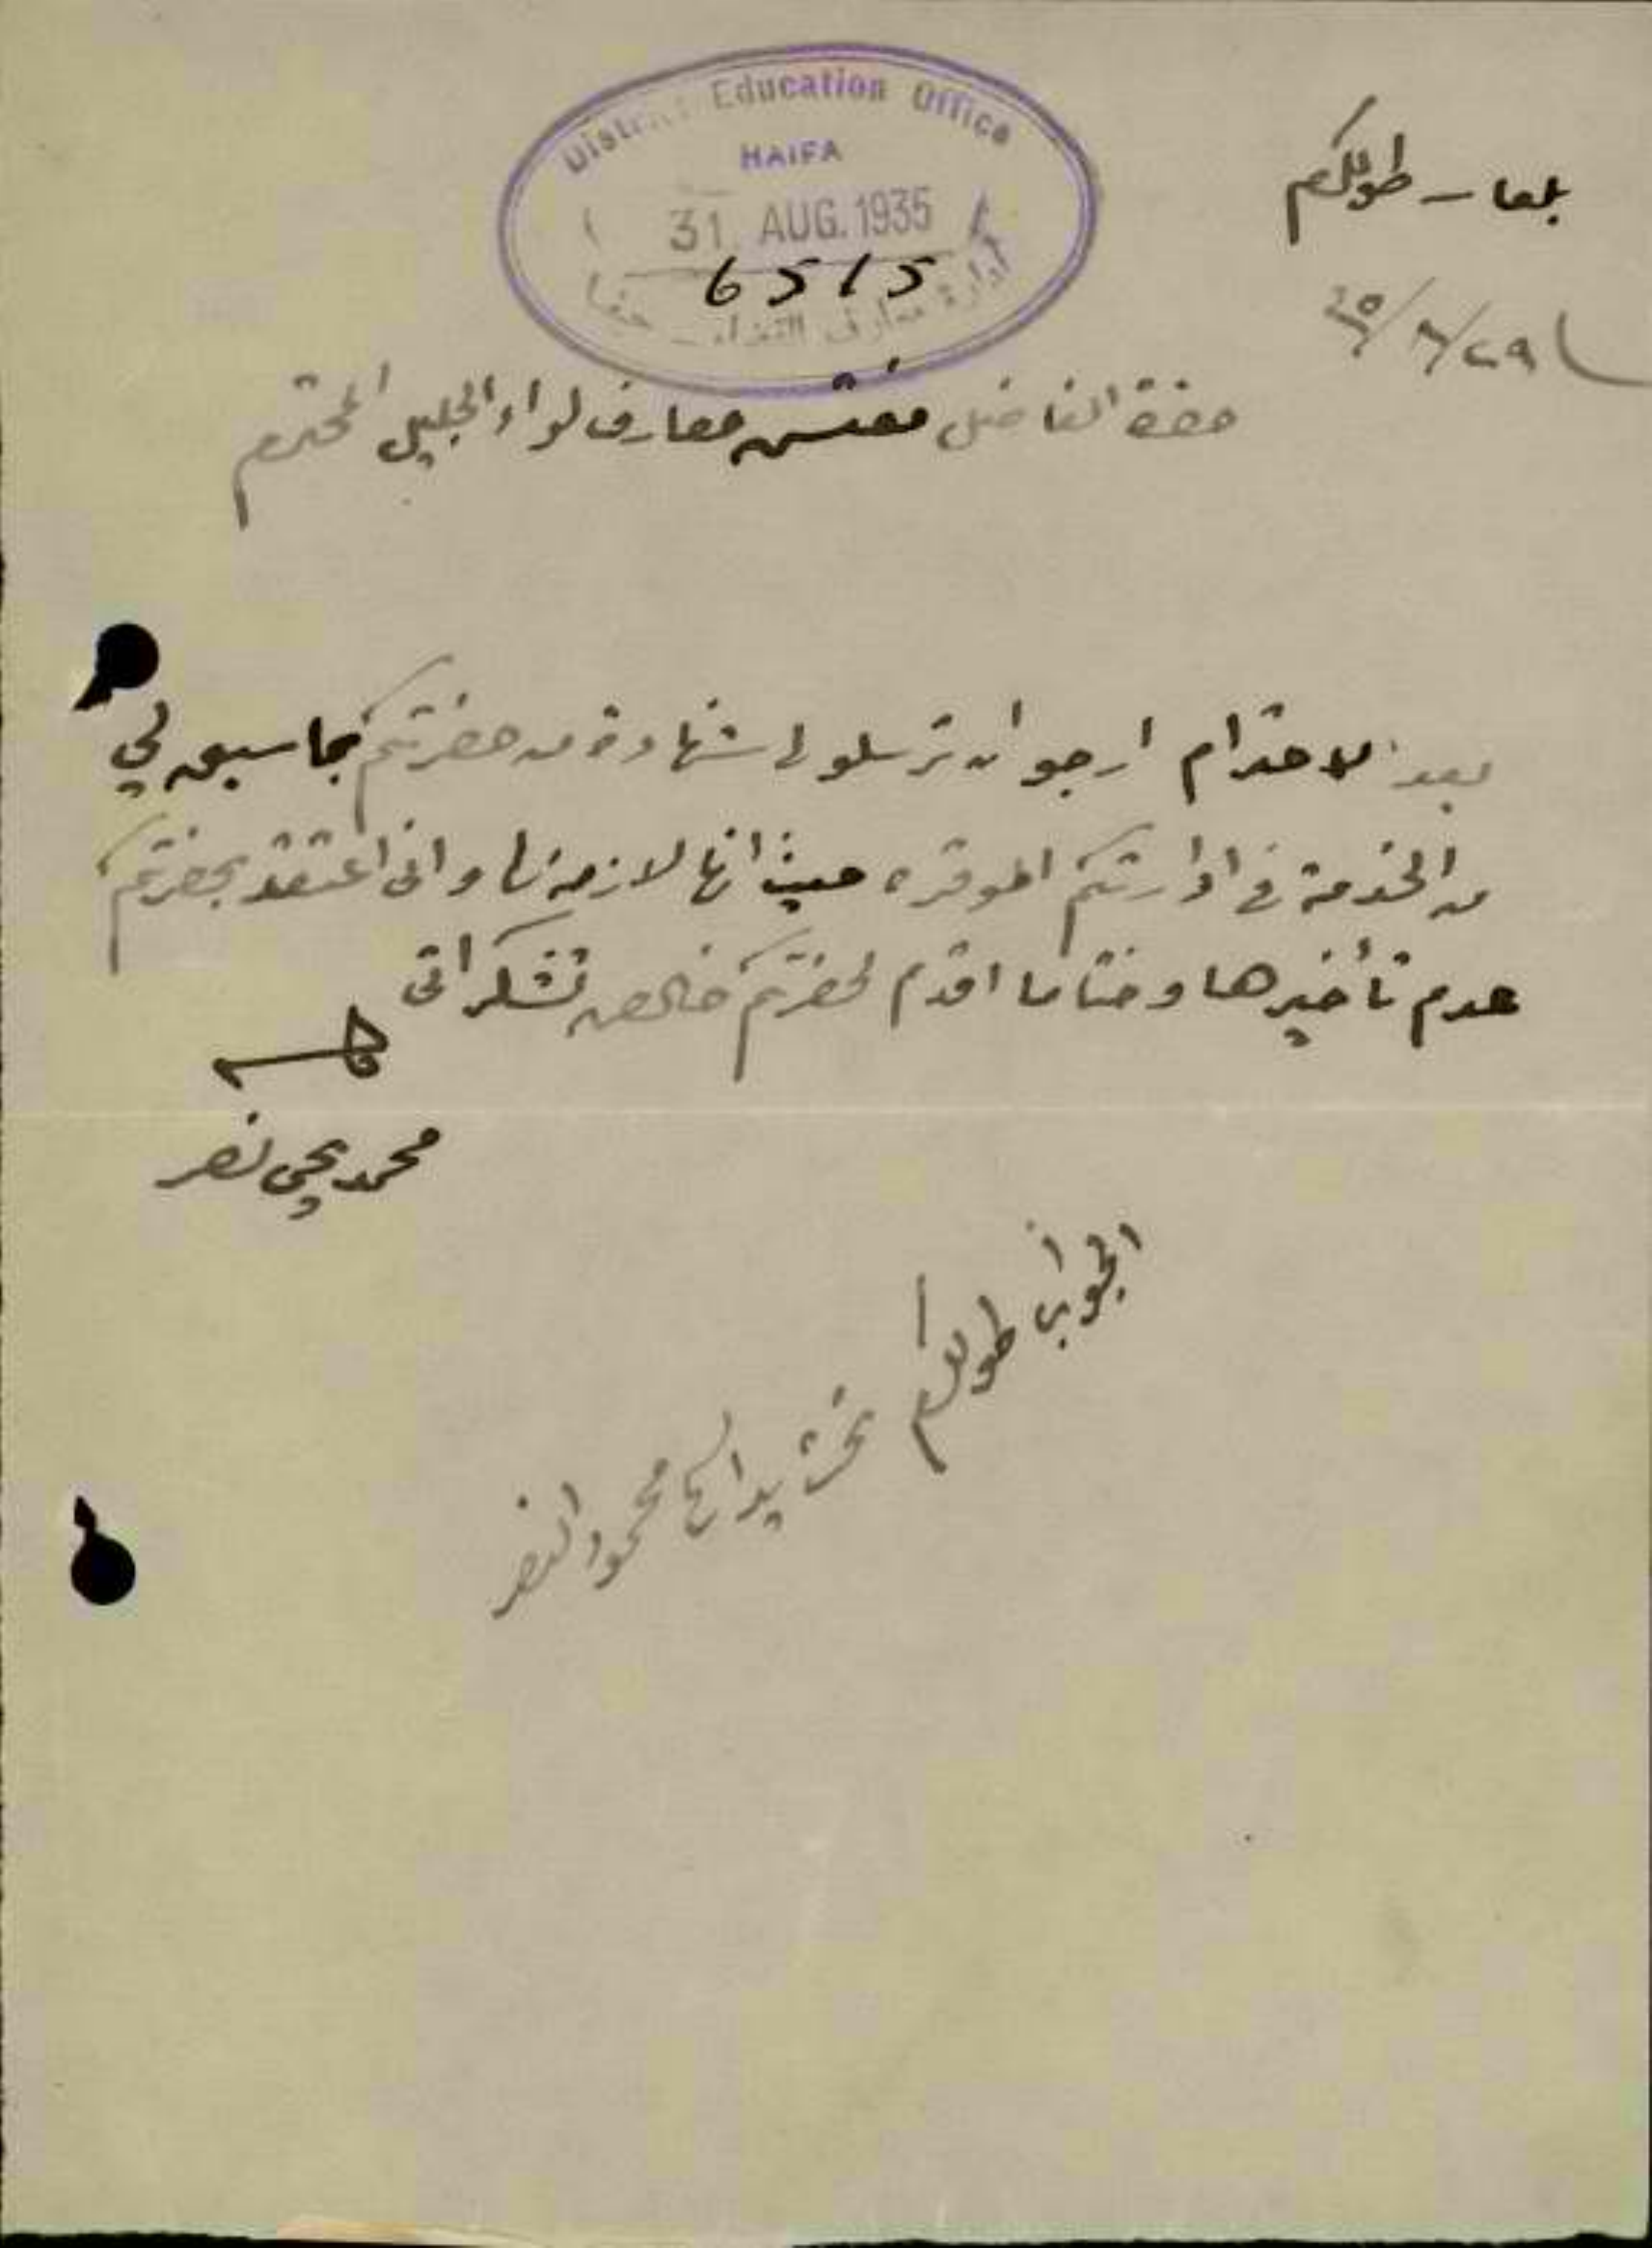 District Education Office
HAIFA
31 AUG. 1935
6515
ادارة معارف القضاء - حيفا
بلعا - طولكرم
٣٥/٨/٢٩
حضرة الفاضل مفتش معارف لواء الجليل المحترم
بعد الاحترام ارجو ان ترسلوا لي شهادة من حضرتكم بما سبق لي
من الخدمة في ادارتكم الموقره حيث انها لازمة لنا واني اعتقد بحضرتكم
عدم تأخيرها وختاما اقدم لحضرتكم خالص تشكراتي
محمد يحي نصر
الجواب طولكرم تحت يد الحاج محمود النصر